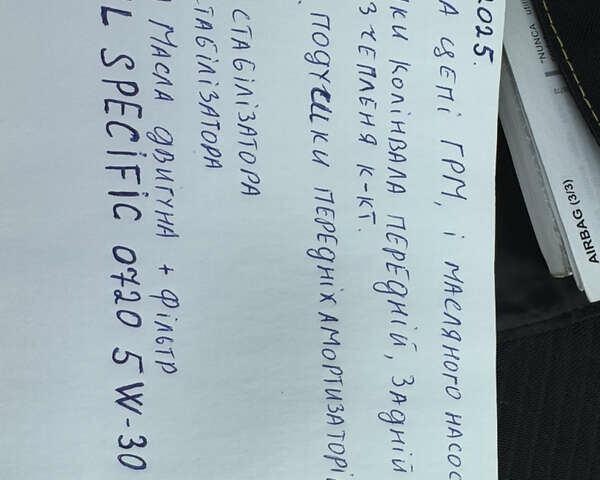 2025.
А ЦЕПІ ГРМ, І МАСЛЯНОГО НАСОС
КИ КОЛІНВАЛА ПЕРЕДНІЙ, ЗАДНІЙ
ЗЧЕПЛЕНЯ К-КТ.
ПОДУШКИ ПЕРЕДНІХ АМОРТИЗАТОРІ
СТАБІЛІЗАТОРА
ТАБІЛІЗАТОРА
МАСЛА ДВИГУНА + ФІЛЬТР
L SPECIFIC 0720 5W-30
AIRBAG (3/3)
"NUNCA